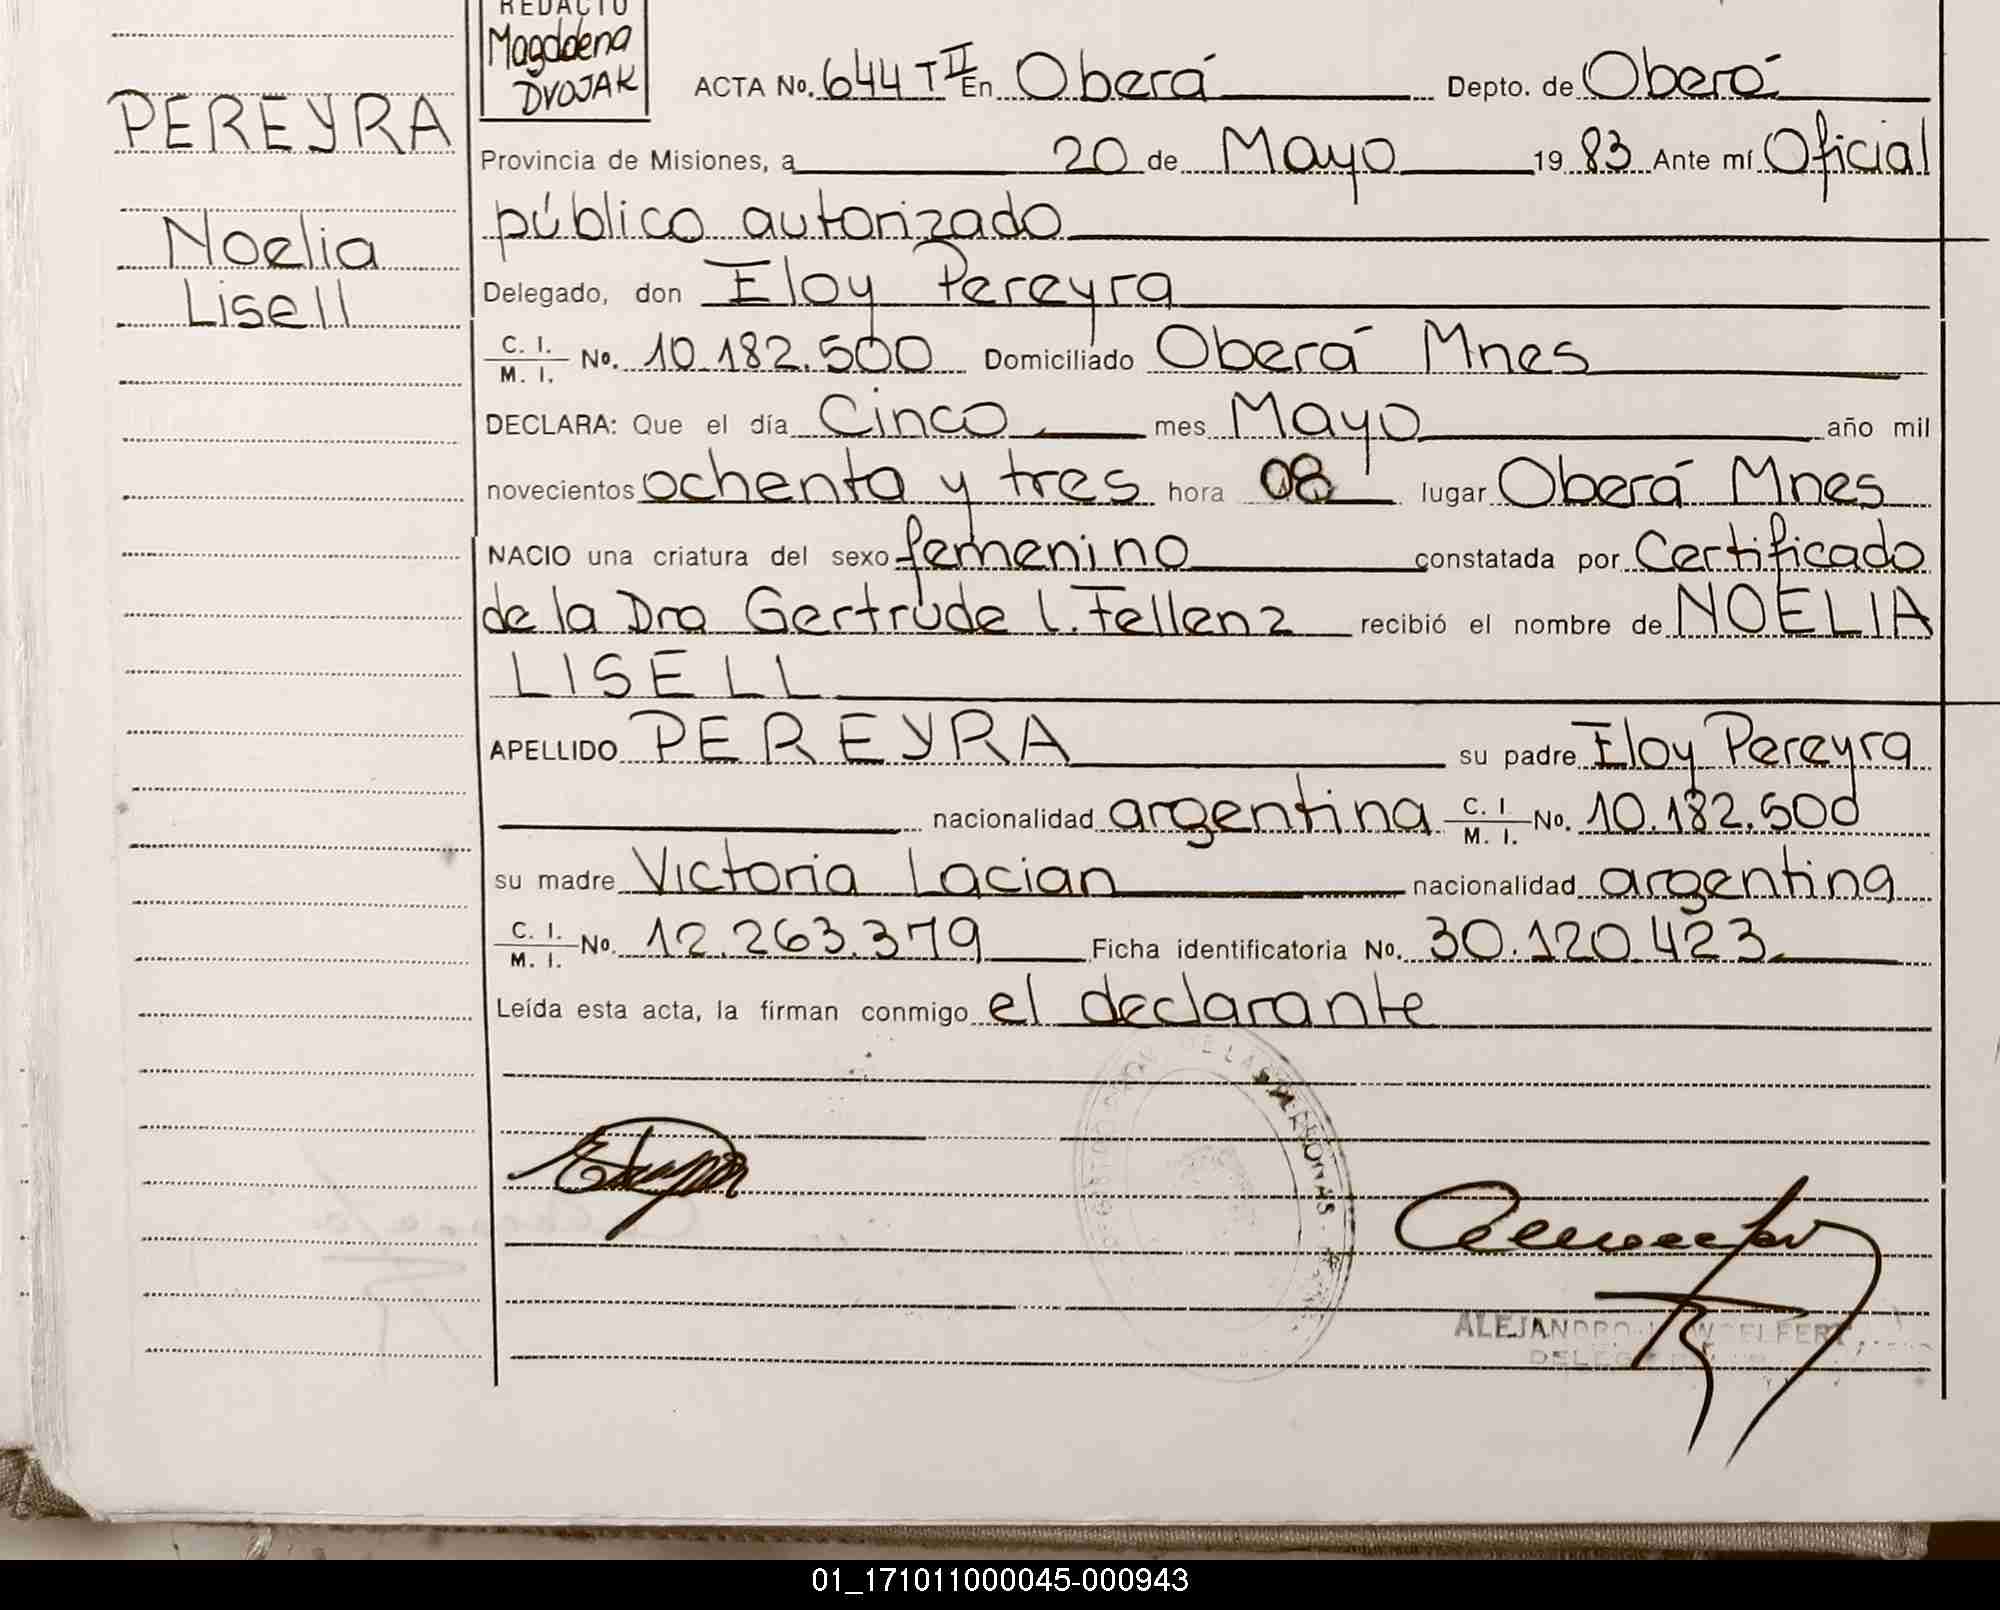 REDACTO
Magdalena
DVOJAK
PEREYRA
Noelia
Lisell
ACTA No. 644 T II En Oberá Depto. de Oberá
Provincia de Misiones, a 20 de Mayo 19 83 Ante mí Oficial
público autorizado
Delegado, don Eloy Pereyra
C. I. / M. I. No. 10.182.500 Domiciliado Oberá Mnes
DECLARA: Que el día Cinco mes Mayo año mil
novecientos ochenta y tres hora 08 lugar Oberá Mnes
NACIO una criatura del sexo femenino constatada por Certificado
de la Dra Gertrude l. Fellenz recibió el nombre de NOELIA
LISELL
APELLIDO PEREYRA su padre Eloy Pereyra
nacionalidad argentina C. I. / M. I. No. 10.182.500
su madre Victoria Lacian nacionalidad argentina
C. I. / M. I. No. 12.263.379 Ficha identificatoria No. 30.120.423
Leída esta acta, la firman conmigo el declarante
DE LAS PERSONAS
ALEJANDRO
01_171011000045-000943